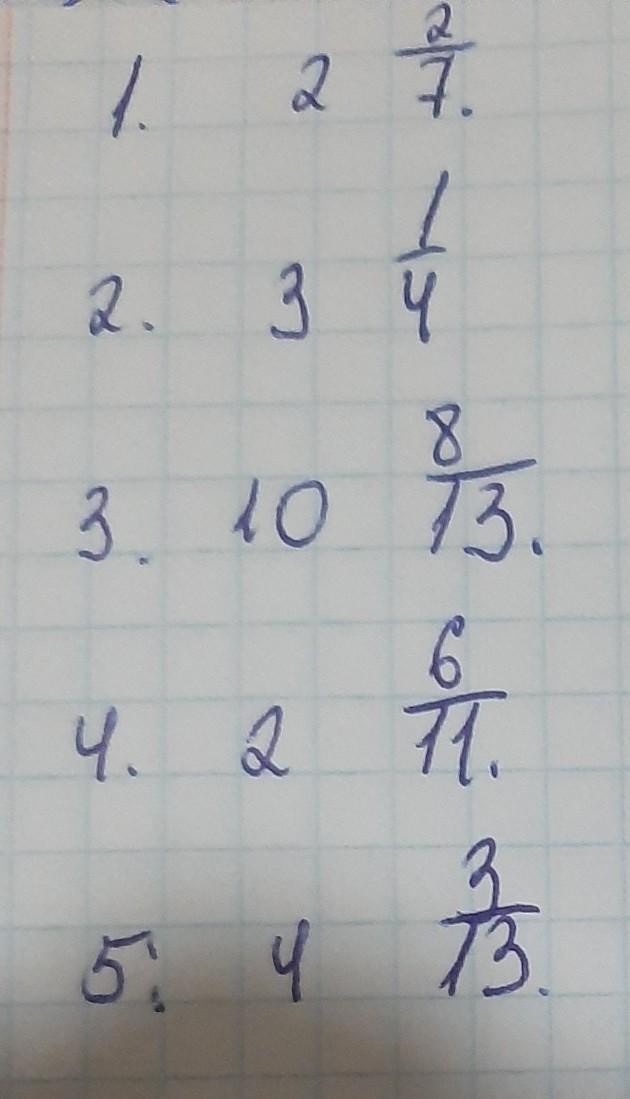 1. 2 2/7.
2. 3 1/4
3. 10 8/13.
4. 2 6/11.
5. 4 3/13.